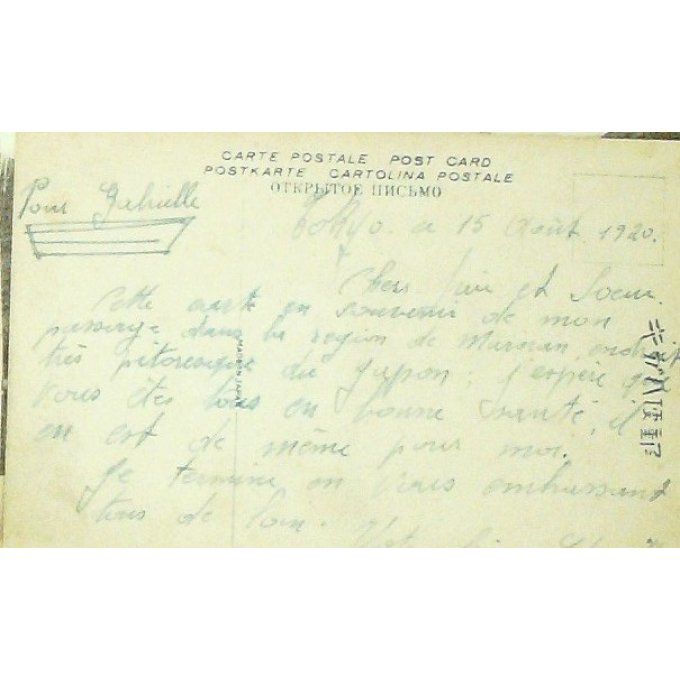 CARTE POSTALE POST CARD
POSTKARTE CARTOLINA POSTALE
ОТКРЫТОЕ ПИСЬМО
Pour Gabrielle
Tokyo. a 15 Août 1920.
Chers et Soeur.
Cette carte en souvenir de mon
passage dans la region de Muroran, endroit
très pitoresque du Japon, j'espère que
vous êtes tous en bonne santé, il
en est de même pour moi.
Je termine en vous embrassant
tous de loin.